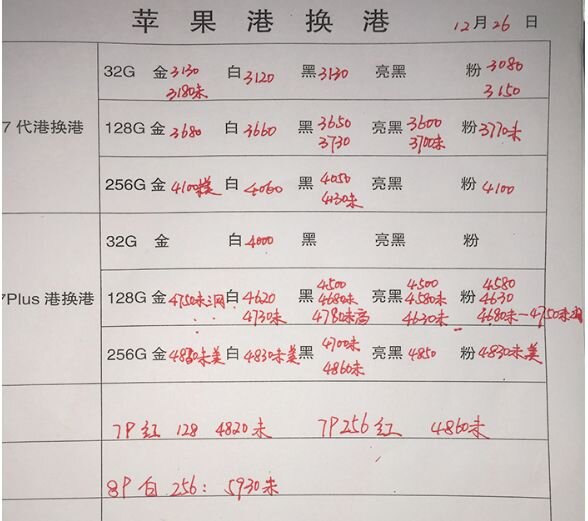 苹果港换港 12月26日
32G 金 3130 白 3120 黑 3130 亮黑 粉 3080
3180未 3150
7代港换港 128G 金 3680 白 3660 黑 3650 亮黑 3600 粉 3770未
3730 3700未
256G 金 4100美 白 4060 黑 4050 亮黑 粉 4100
4130未
32G 金 白 4000 黑 亮黑 粉
7Plus 港换港 128G 金 4750未三网 白 4620 黑 4500 亮黑 4500 粉 4580
4730未 4680未 4580未 4630
4780未高 4630未 4680未-4750未
256G 金 4880未美 白 4830未美 黑 4700未 亮黑 4850 粉 4830未美
4860未
7P 红 128 4820未 7P 256 红 4860未
8P 白 256: 5930未